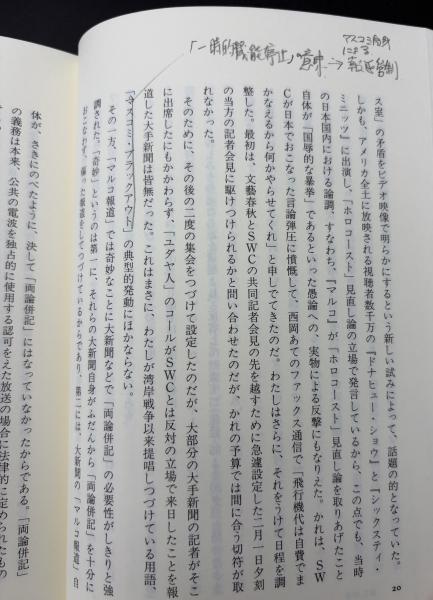 「一時的機能停止」の意味→
マスコミ自身
による
報道管制
ス室』の矛盾をビデオ映像で明らかにするという新しい試みによって、話題の的となっていた。
しかも、アメリカ全土に放映される視聴者数千万の『ドナヒュー・ショウ』と『シックスティ・
ミニッツ』に出演し、「ホロコースト」見直し論の立場で発言しているから、この点でも、当時
の日本国内における論調、すなわち、『マルコ』が「ホロコースト」見直し論を取りあげたこと
自体が「国辱的な暴挙」であるといった愚論への、実物による反撃にもなりえた。かれは、SW
Cが日本でおこなった言論弾圧に憤慨して、西岡あてのファックス通信で「飛行機代は自費でま
かなえるから何かやらせてくれ」と申しでてきたのだ。わたしはさらに、それをうけて日程を調
整した。最初は、文藝春秋とSWCの共同記者会見の先を越すために急遽設定した二月一日夕刻
の当方の記者会見に駆けつけられるかと問い合わせたのだが、かれの予算では間に合う切符が取
れなかった。
そのために、その後の二度の会見をつづけて設定したのだが、大部分の大手新聞の記者がそこ
に出席したにもかかわらず、「ユダヤ人」のコールがSWCとは反対の立場で来日したことを報
道した大手新聞は皆無だった。これはまさに、わたしが湾岸戦争以来提唱しつづけている用語、
「マスコミ・ブラックアウト」の典型的発動にほかならない。
その一方、「マルコ報道」では奇妙なことに大新聞などで「両論併記」の必要性がしきりと強
調された。「奇妙」というのは第一に、それらの大新聞自身がふだんから「両論併記」を十分に
おこなわず、偏った報道をしてつづけているからであり、第二には、大新聞の「マルコ報道」自
体が、さきにのべたように、決して「両論併記」にはなっていなかったからである。「両論併記」
の義務は本来、公共の電波を独占的に使用する認可をえた放送の場合に法律的に定められたもの
20